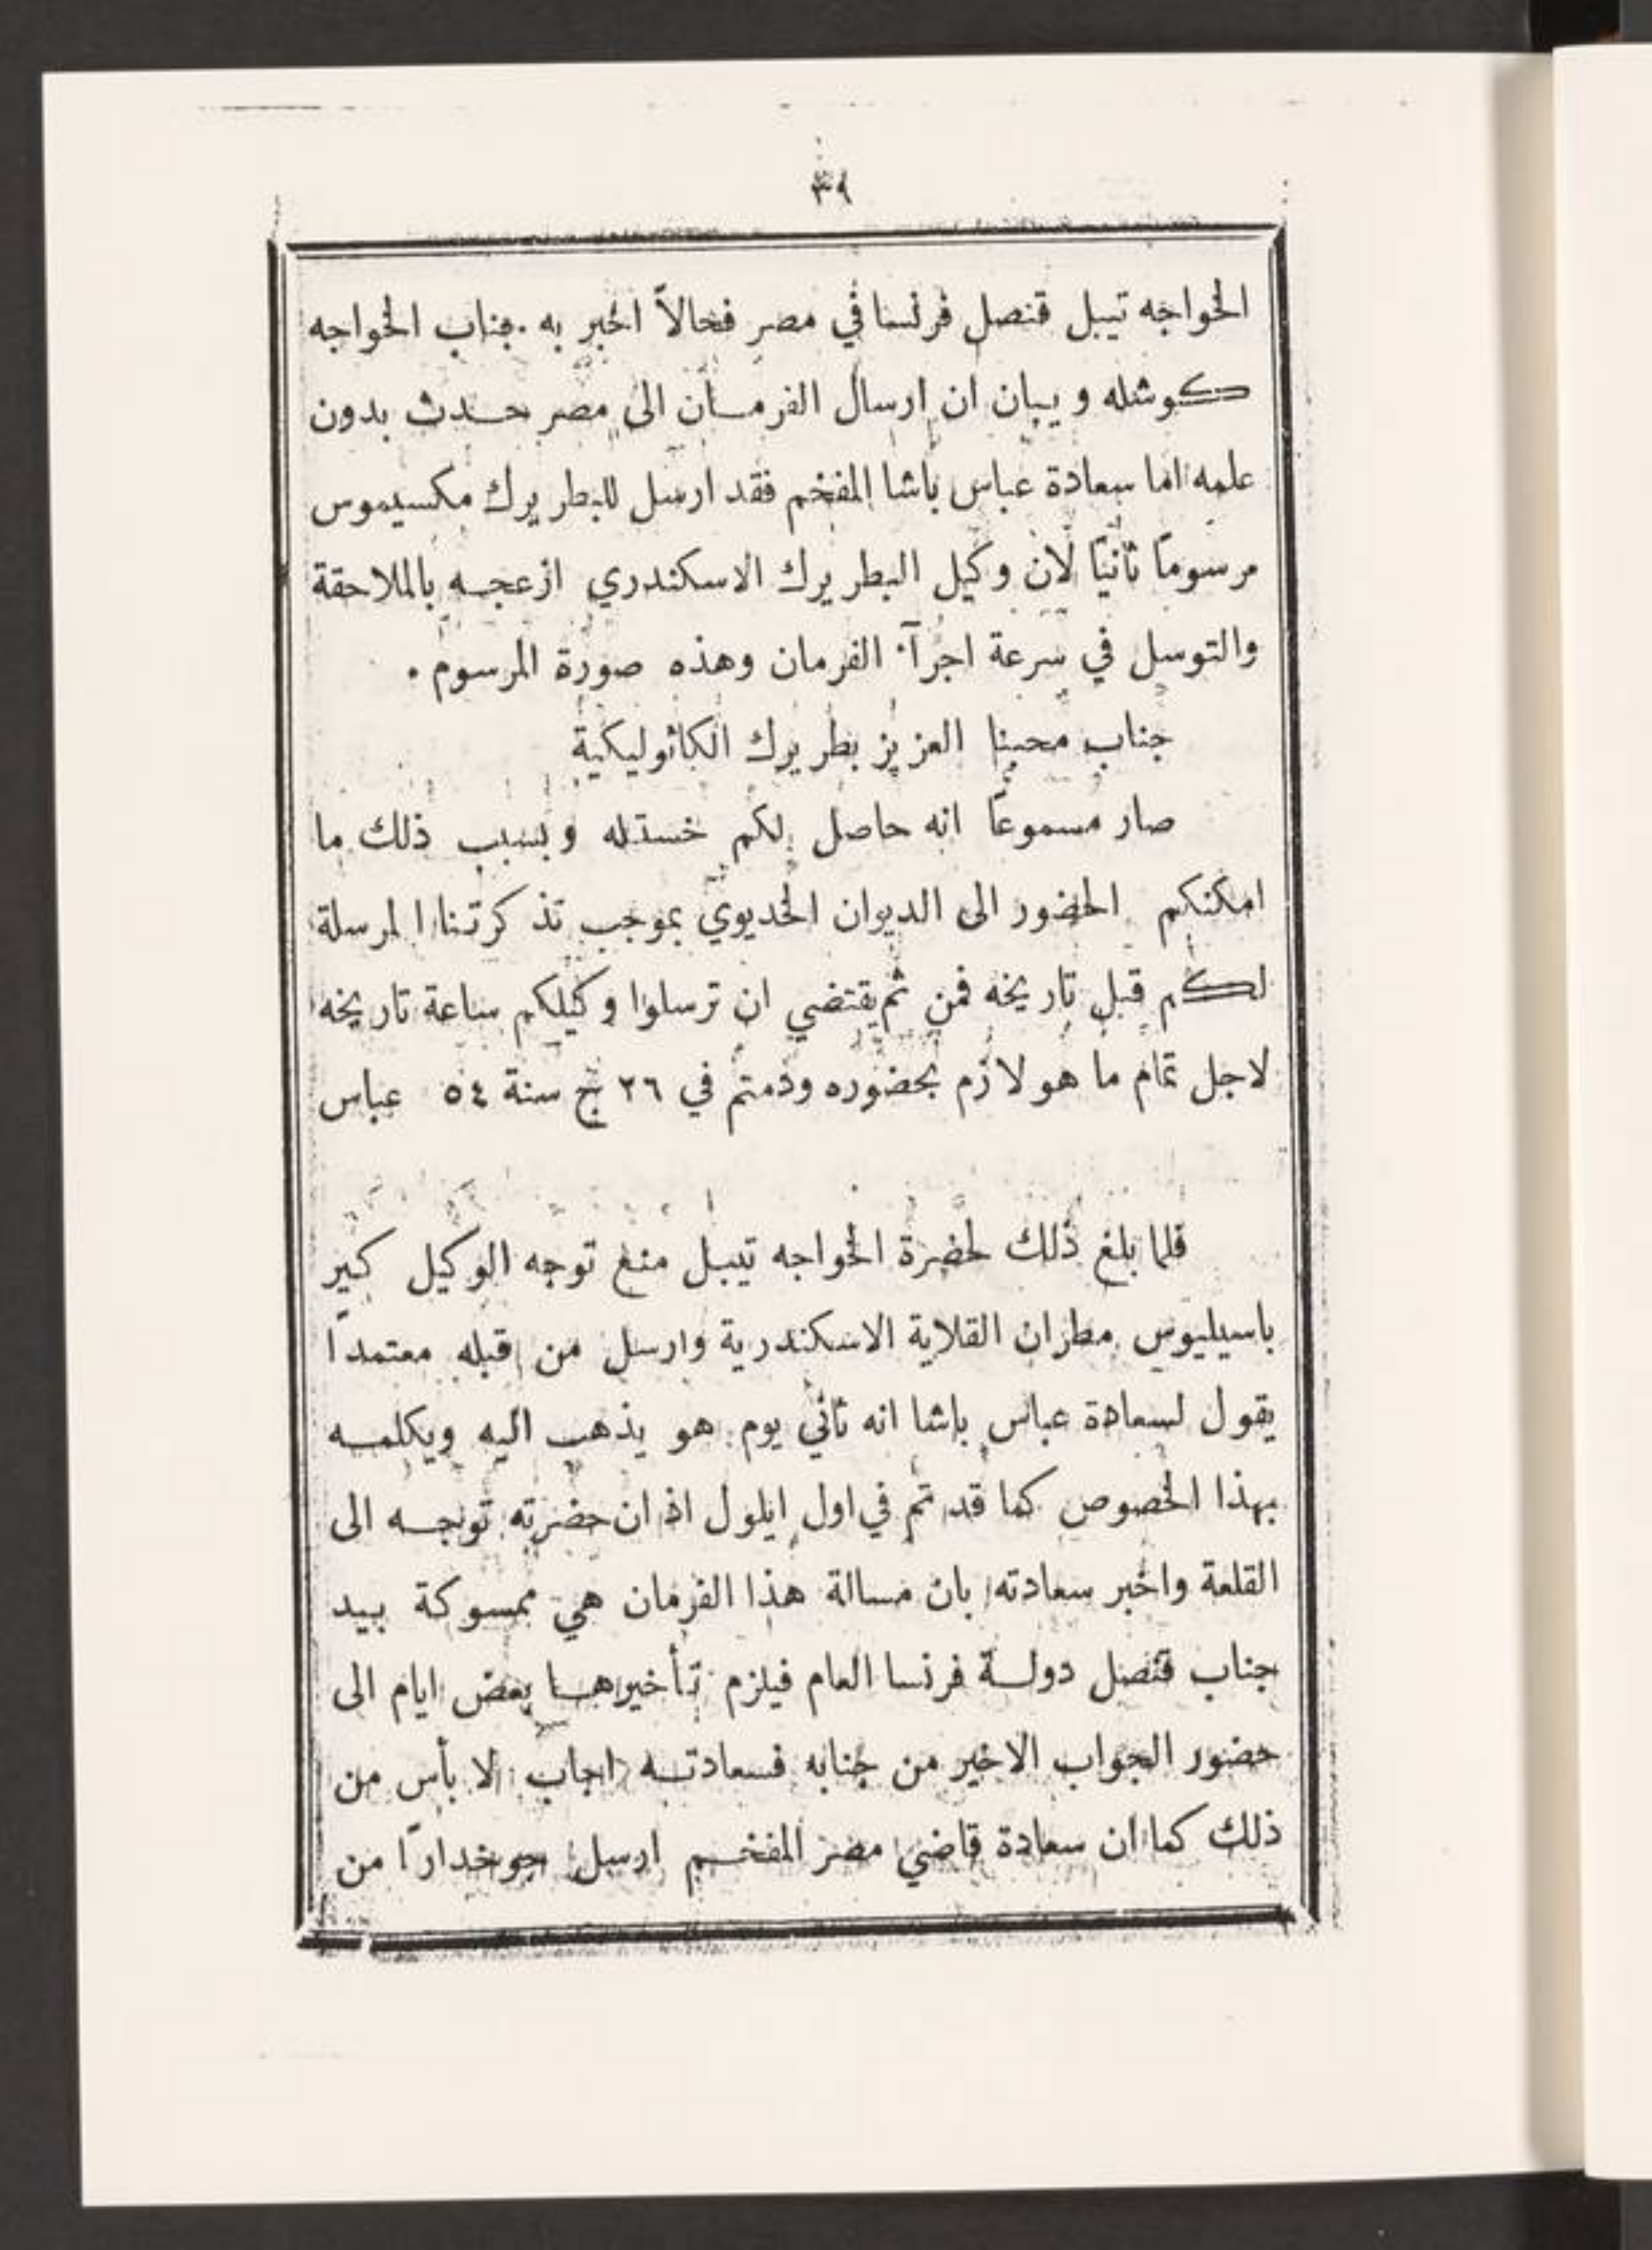 ٣٩
الخواجه تيبل قنصل فرنسا في مصر فحالاً اخبر به جناب الخواجه
كوشله و يبان ان ارسال الفرمان الى مصر حدث بدون
علمه اما سعادة عباس باشا المفخم فقد ارسل للبطريرك مكسيموس
مرسوماً ثانياً لان وكيل البطريرك الاسكندري ازعجه بالملاحقة
والتوسل في سرعة اجرآء الفرمان وهذه صورة المرسوم .
جناب محبنا العزيز بطريرك الكاثوليكية
صار مسموعاً انه حاصل لكم خستله وبسبب ذلك ما
امكنكم الحضور الى الديوان الخديوي بموجب تذكرتنا المرسلة
لكم قبل تاريخه فمن ثم يقتضي ان ترسلوا وكيلكم ساعة تاريخه
لاجل تمام ما هو لازم بحضوره ودمتم في ٢٦ ج سنة ٥٤ عباس
فلما بلغ ذلك لحضرة الخواجه تيبل منع توجه الوكيل كير
باسيليوس مطران القلاية الاسكندرية وارسل من قبله معتمداً
يقول لسعادة عباس باشا انه ثاني يوم هو يذهب اليه ويكلمه
بهذا الخصوص كما قد تم في اول ايلول اذ ان حضرته توجه الى
القلعة واخبر سعادته بان مسالة هذا الفرمان هي ممسوكة بيد
جناب قنصل دولة فرنسا العام فيلزم تأخيرها بعض ايام الى
حضور الجواب الاخير من جنابه فسعادته اجاب لا بأس من
ذلك كما ان سعادة قاضي مصر المفخم ارسل جوخداراً من